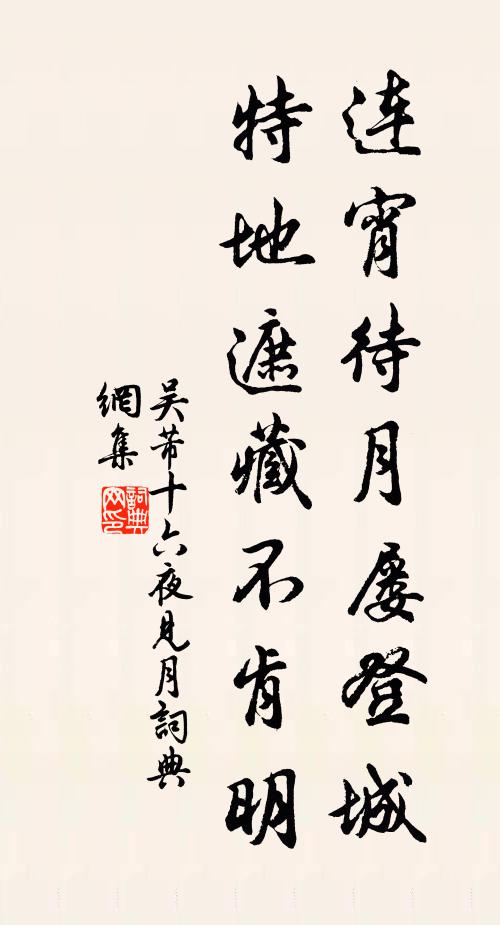 連宵待月屡登城
特地遮藏不肯明
吴芾十六夜見月詞典
網集
詞典网印